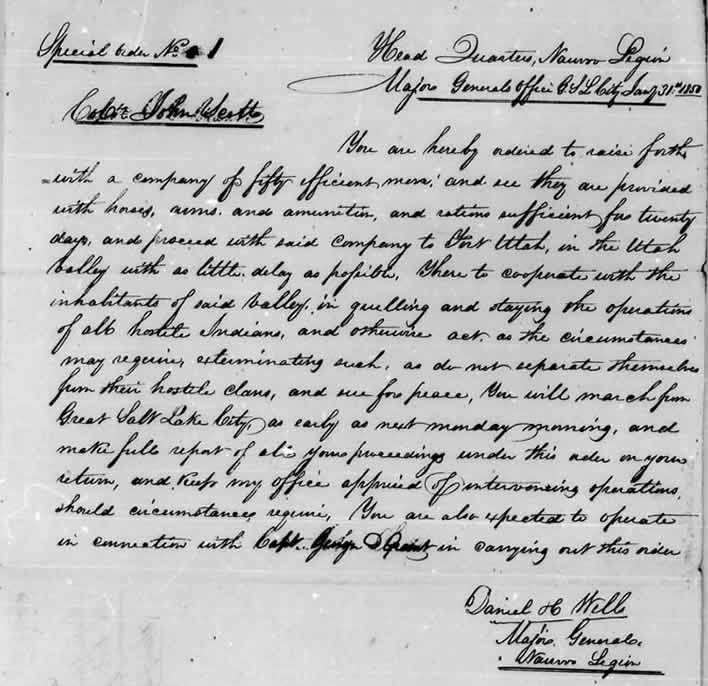 Special Order No. 1
Head Quarters, Nauvoo Legion
Majors Generals Office G.S.L. City Jany 31st 1850
John Scott
You are hereby ordered to raise forth
=with a company of fifty efficient men; and see they are provided
with horses, arms. and amunition, and rations sufficient for twenty
days, and proceed with said company to Fort Utah, in the Utah
Valley with as little delay as possible, There to cooperate with the
inhabitants of said Valley, in quelling and staying the operations
of all hostile Indians, and otherwise act, as the circumstances
may require, exterminating such, as do not separate themselves
from their hostile clans, and sue for peace, You will march from
Great Salt Lake City, as early as next monday morning, and
make full report of all your proceedings under this order on your
return, and keep my office apprised of intervening operations,
should circumstances require, You are also expected to operate
in connection with Capt. Grant in carrying out this order
Daniel H Wells
Major General,
Nauvoo Legion